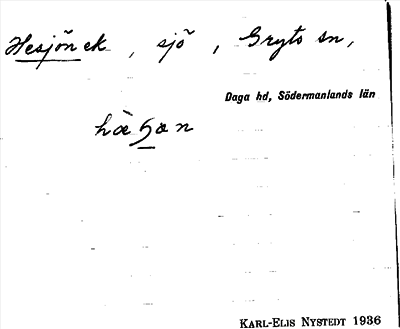 Hesjön ek, sjö, Gryts sn,
Daga hd, Södermanlands län
KARL-ELIS NYSTEDT 1936